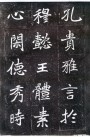 孔貴雅言於
穆懿王體素
心閎德秀時